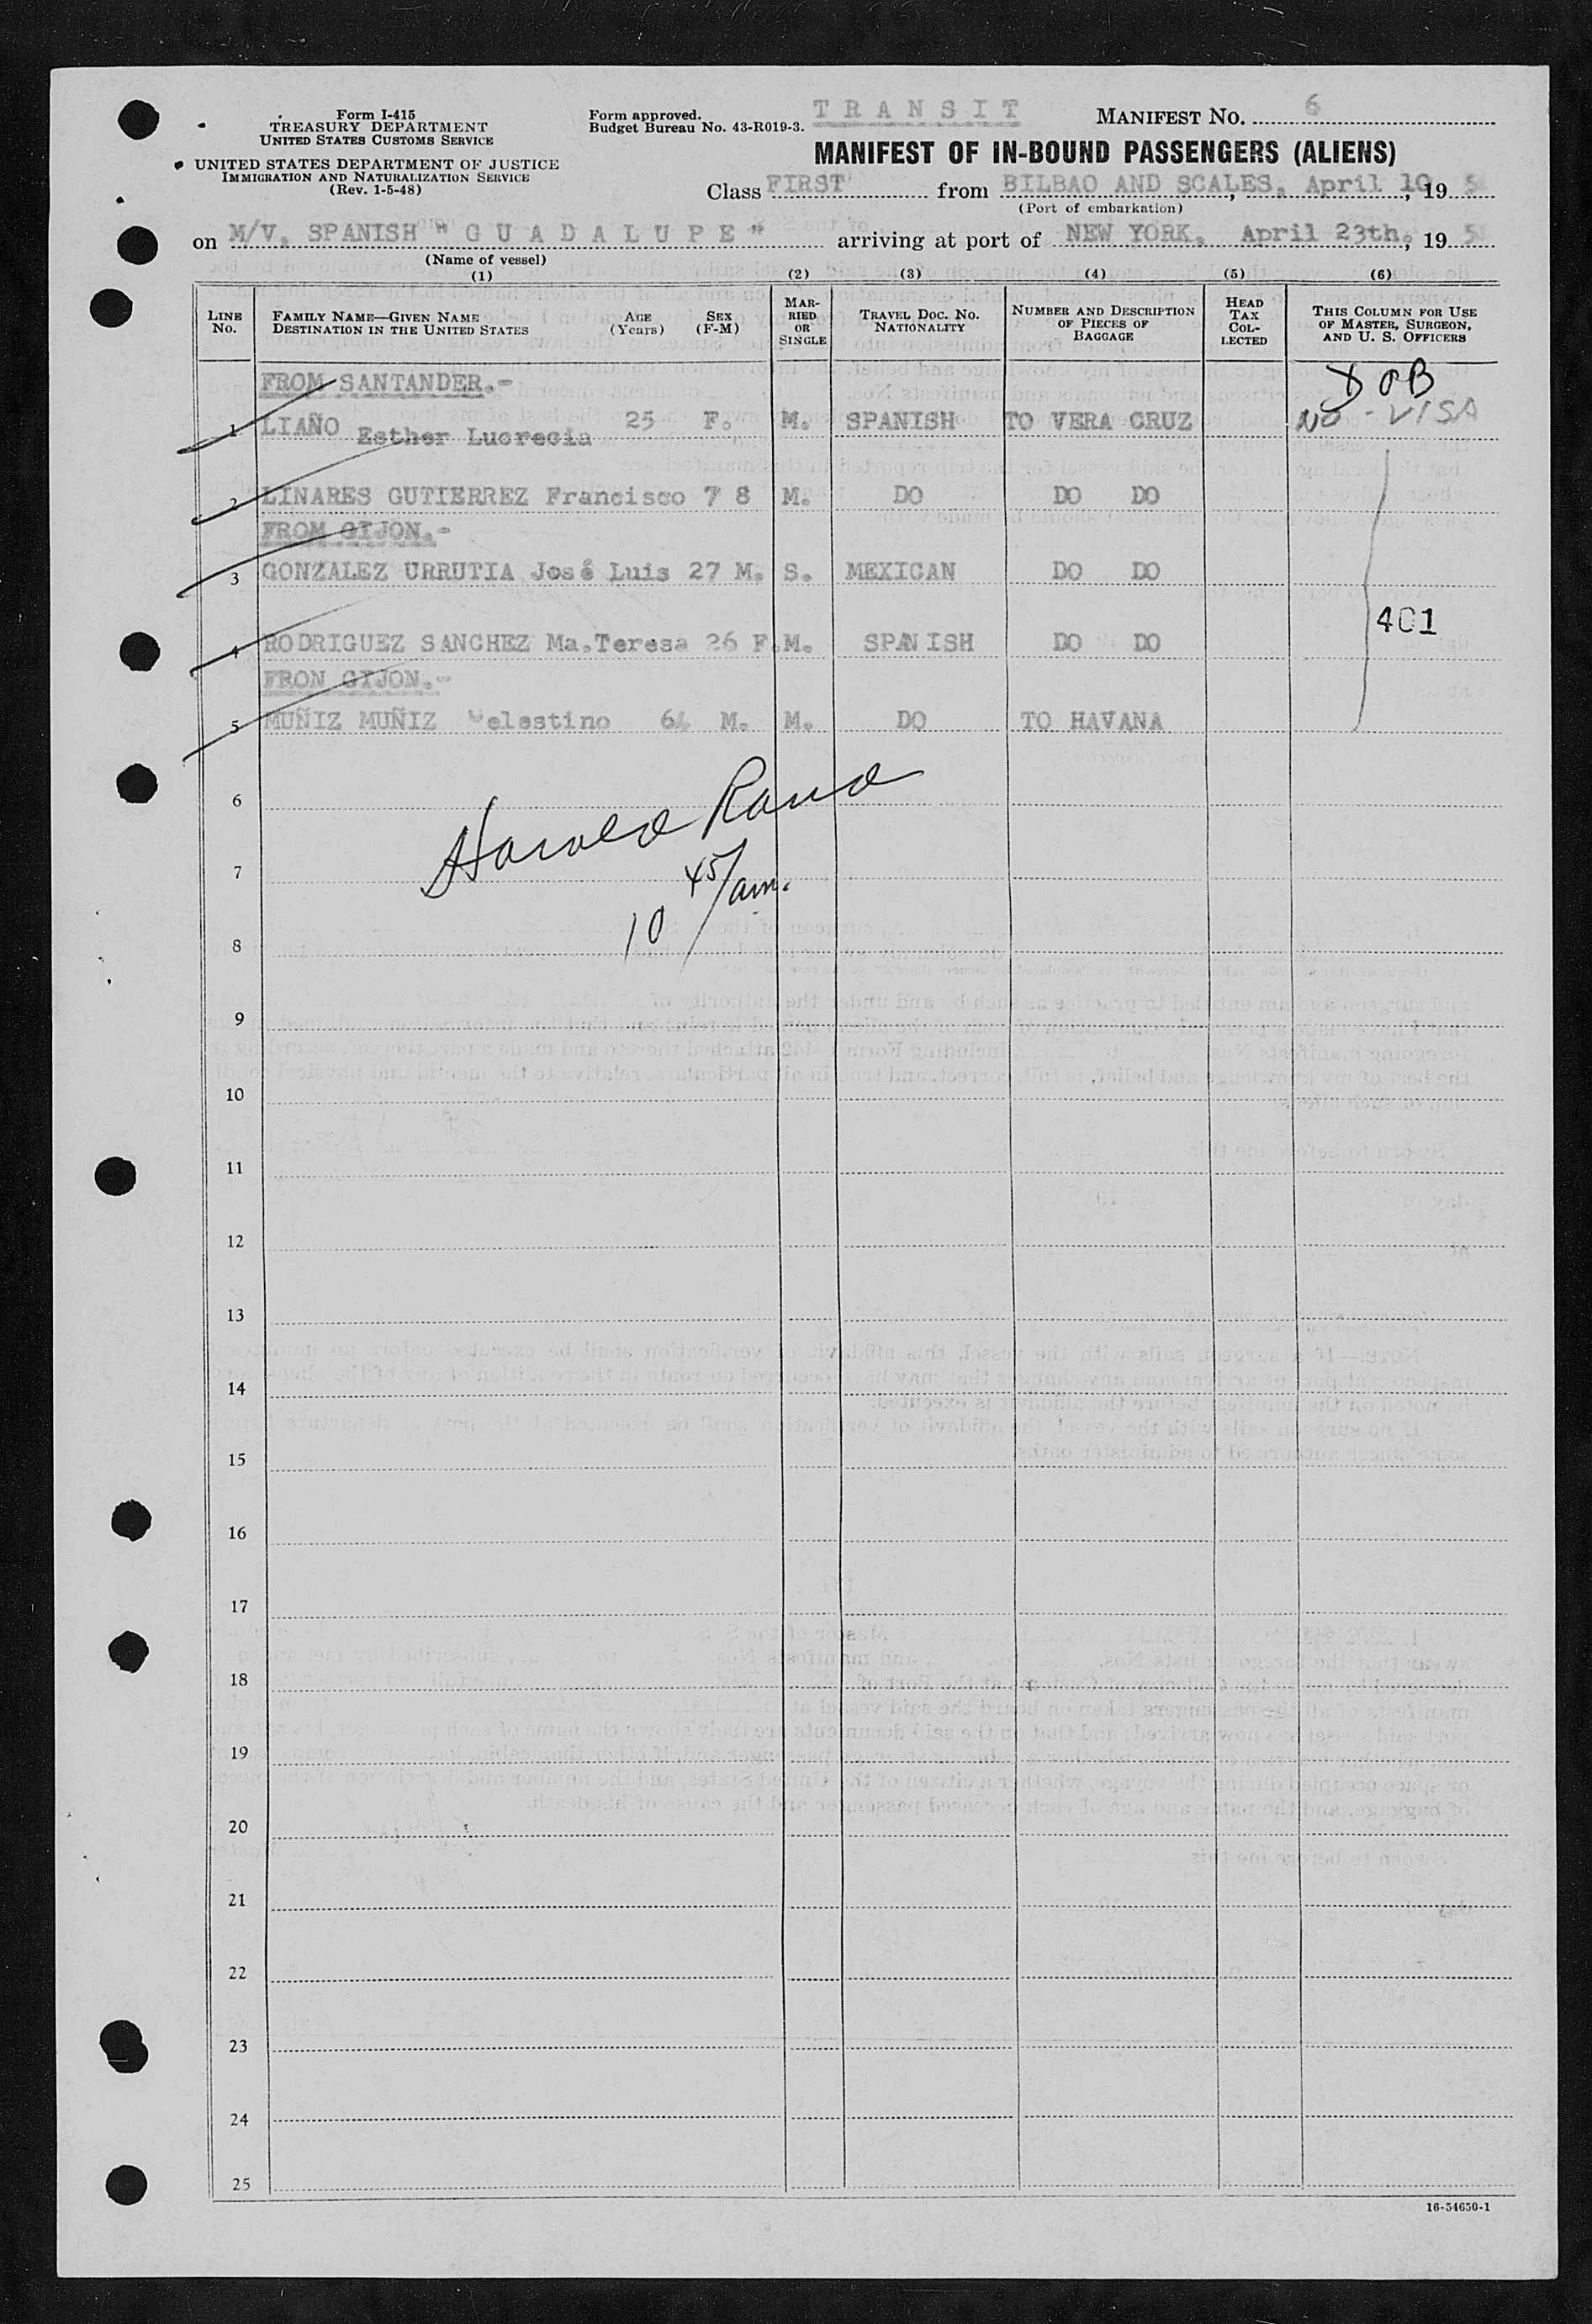 Form I-415
TREASURY DEPARTMENT
UNITED STATES CUSTOMS SERVICE
UNITED STATES DEPARTMENT OF JUSTICE
IMMIGRATION AND NATURALIZATION SERVICE
(Rev. 1-5-48)
Form approved.
Budget Bureau No. 43-R019-3.
TRANSIT
MANIFEST No. 6
MANIFEST OF IN-BOUND PASSENGERS (ALIENS)
Class FIRST from BILBAO AND SCALES, April 10, 19 5
(Port of embarkation)
on M/V. SPANISH "GUADALUPE" arriving at port of NEW YORK, April 23th., 19 5
(Name of vessel)
(1) (2) (3) (4) (5) (6)
LINE No. FAMILY NAME—GIVEN NAME DESTINATION IN THE UNITED STATES AGE (Years) SEX (F-M) MARRIED OR SINGLE TRAVEL DOC. NO. NATIONALITY NUMBER AND DESCRIPTION OF PIECES OF BAGGAGE HEAD TAX COLLECTED THIS COLUMN FOR USE OF MASTER, SURGEON, AND U. S. OFFICERS
FROM SANTANDER.-
1 LIAÑO Esther Lucrecia 25 F. M. SPANISH TO VERA CRUZ NO - VISA
2 LINARES GUTIERREZ Francisco 78 M. DO DO DO
FROM GIJON.-
3 GONZALEZ URRUTIA José Luis 27 M. S. MEXICAN DO DO
401
4 RODRIGUEZ SANCHEZ Ma.Teresa 26 F. M. SPANISH DO DO
FRON GIJON.-
5 MUÑIZ MUÑIZ Celestino 64 M. M. DO TO HAVANA
6
Harold Rand
7
10 45/am.
8
9
10
11
12
13
14
15
16
17
18
19
20
21
22
23
24
25
16-54650-1